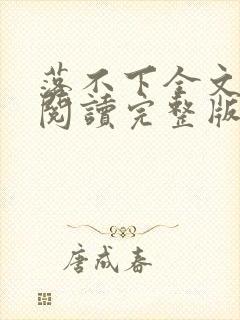 落不下全文
閱讀完整版
唐成春